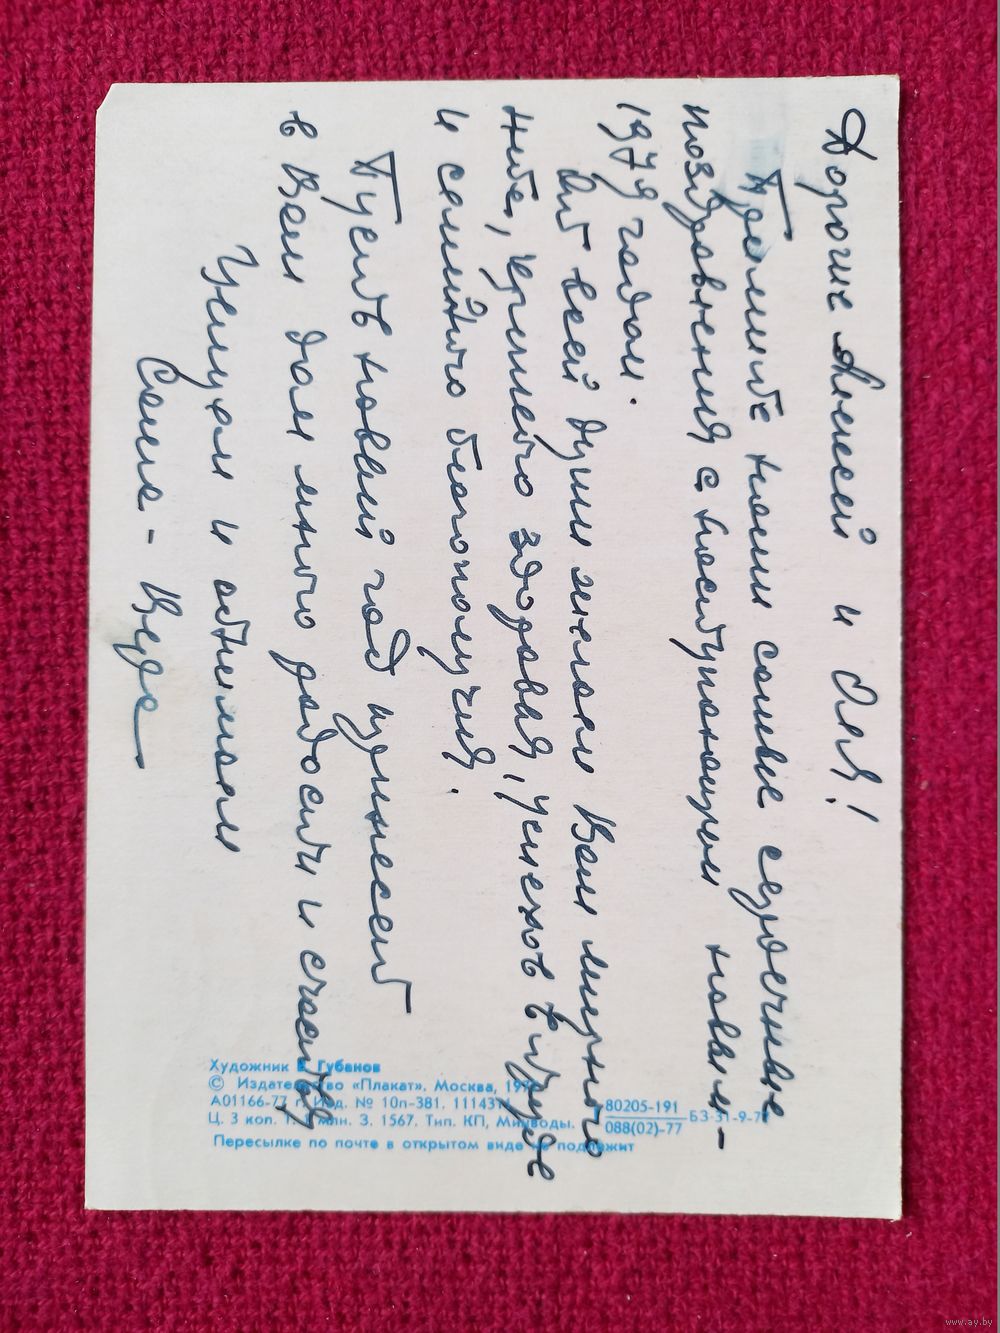 Дорогие Алексей и Оля!
Примите наши самые сердечные
поздравления с наступающим новым-
1979 годом.
От всей души желаем Вам мирного
неба, крепкого здоровья, успехов в труде
и семейного благополучия.
Пусть новый год принесет
в Ваш дом много радости и счастья
Целуем и обнимаем
Саша - Вера
Художник В Губанов
© Издательство «Плакат». Москва, 197
А01166-77 г. Изд. № 10п-381. 111431
Ц. 3 коп. Т. млн. З. 1567. Тип. КП, Минводы. 80205-191 БЗ-31-9-77
088(02)-77
Пересылке по почте в открытом виде не подлежит
www.ay.by